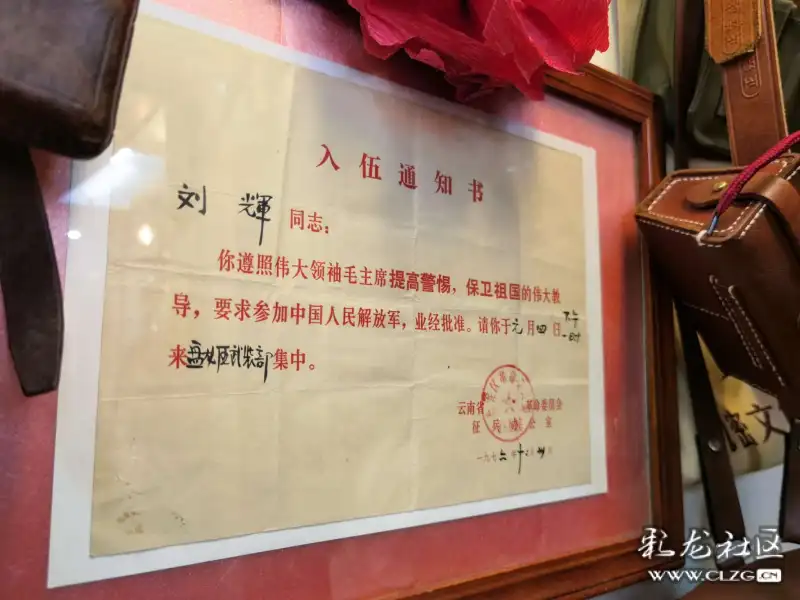 入伍通知书
刘輝 同志：
你遵照伟大领袖毛主席提高警惕，保卫祖国的伟大教
导，要求参加中国人民解放军，业经批准。请你于元月四日下午一时
来盘龙区武装部集中。
云南省 革命委员会
征兵办公室
一九七六年十二月 日
彩龙社区
WWW.CLZG.CN